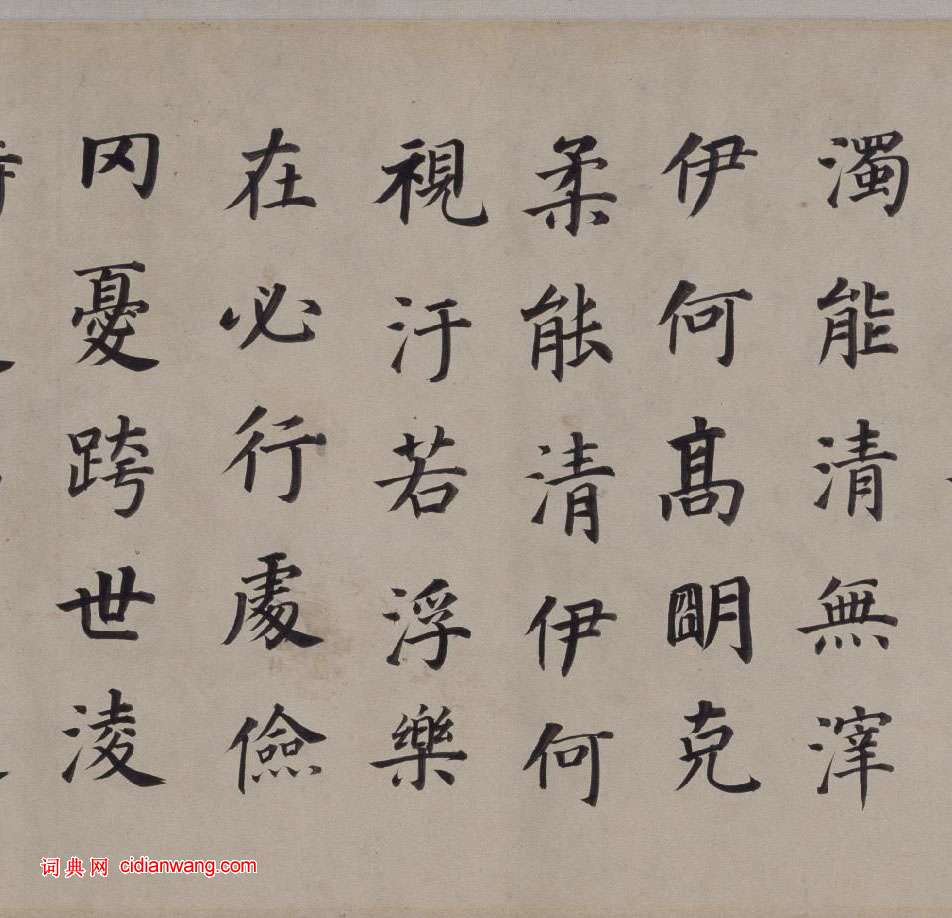 濁能清無滓
伊何高明克
柔能清伊何
視汙若浮樂
在必行處儉
罔憂跨世淩
词典网 cidianwang.com